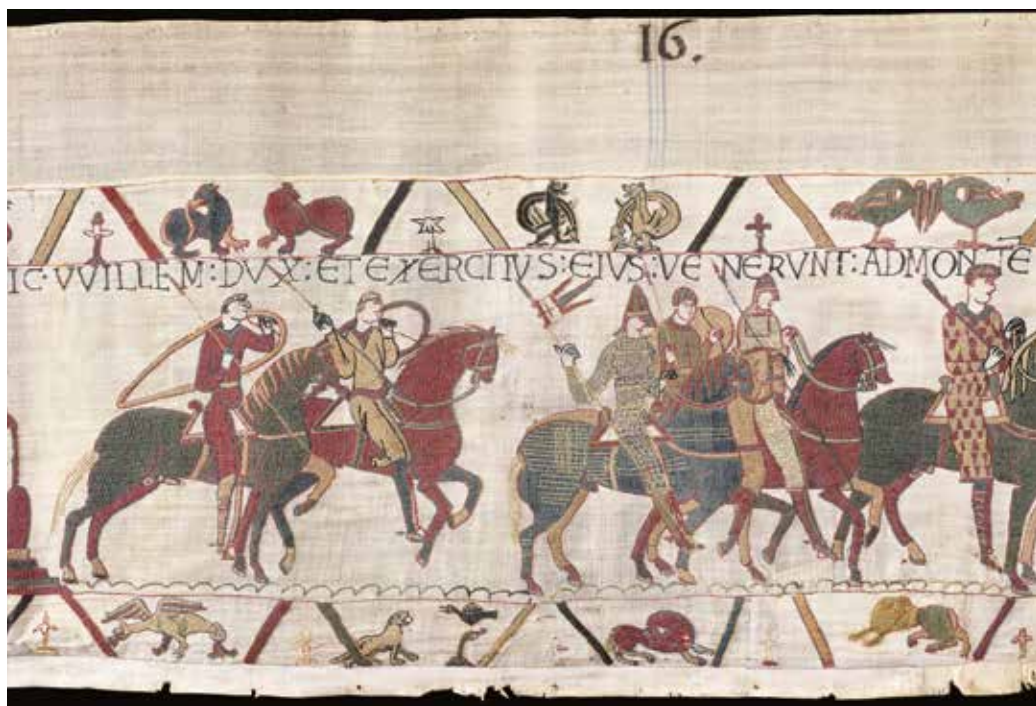 16.
IC: VVILLEM: DVX: ET EXERCITVS: EIVS: VE NERVNT: AD MONTE